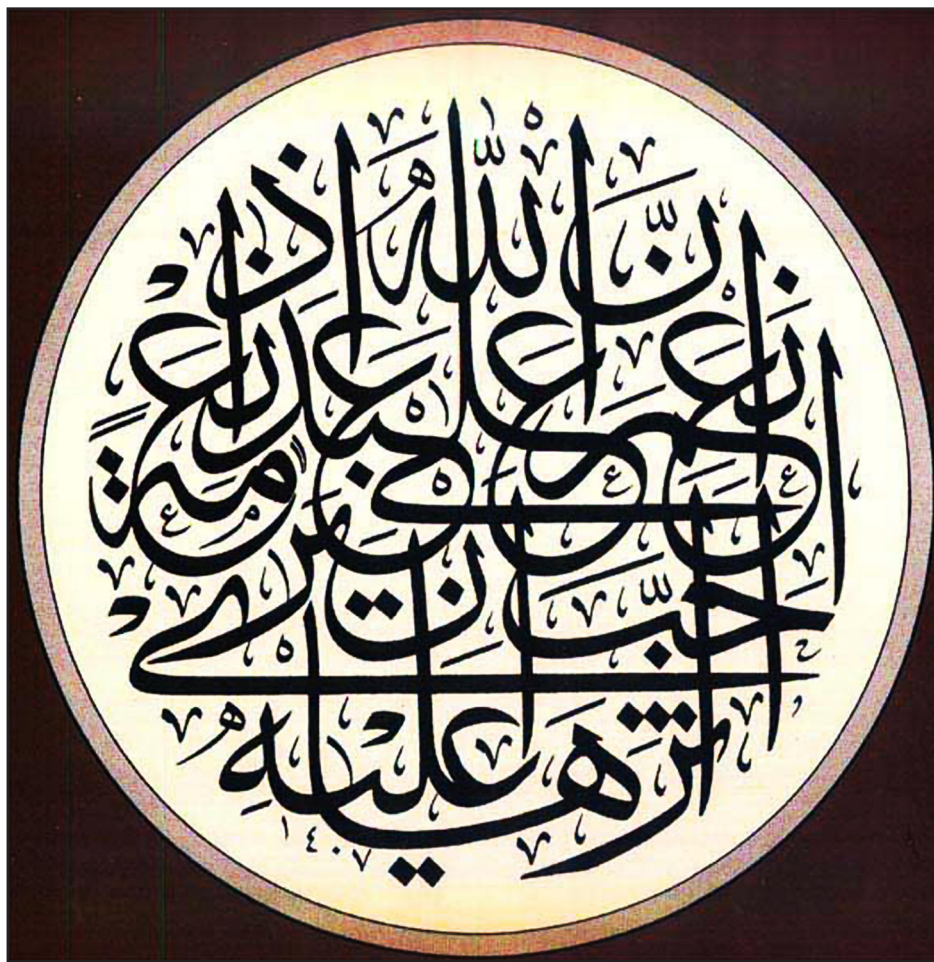 انّ اللّٰه اذا انعم على عبد نعمةً احبّ ان يرى اثرها عليه
١٤٠٧